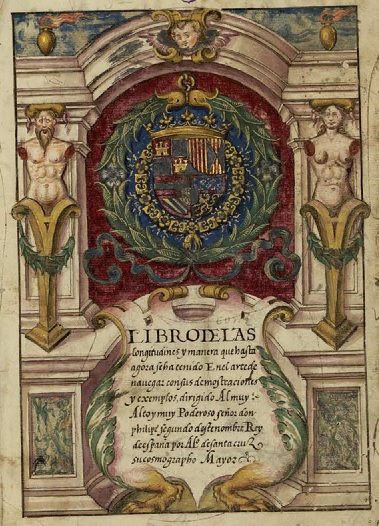 LIBRO DE LAS
longitudines y manera que hasta
agora se ha tenido En el arte de
nauegar con sus demostraciones
y exemplos, dirigido Al muy
Alto y muy Poderoso señor don
philipe segundo deste nombre Rey
de españa por Al.º de santa cruz
su cosmographo Mayor